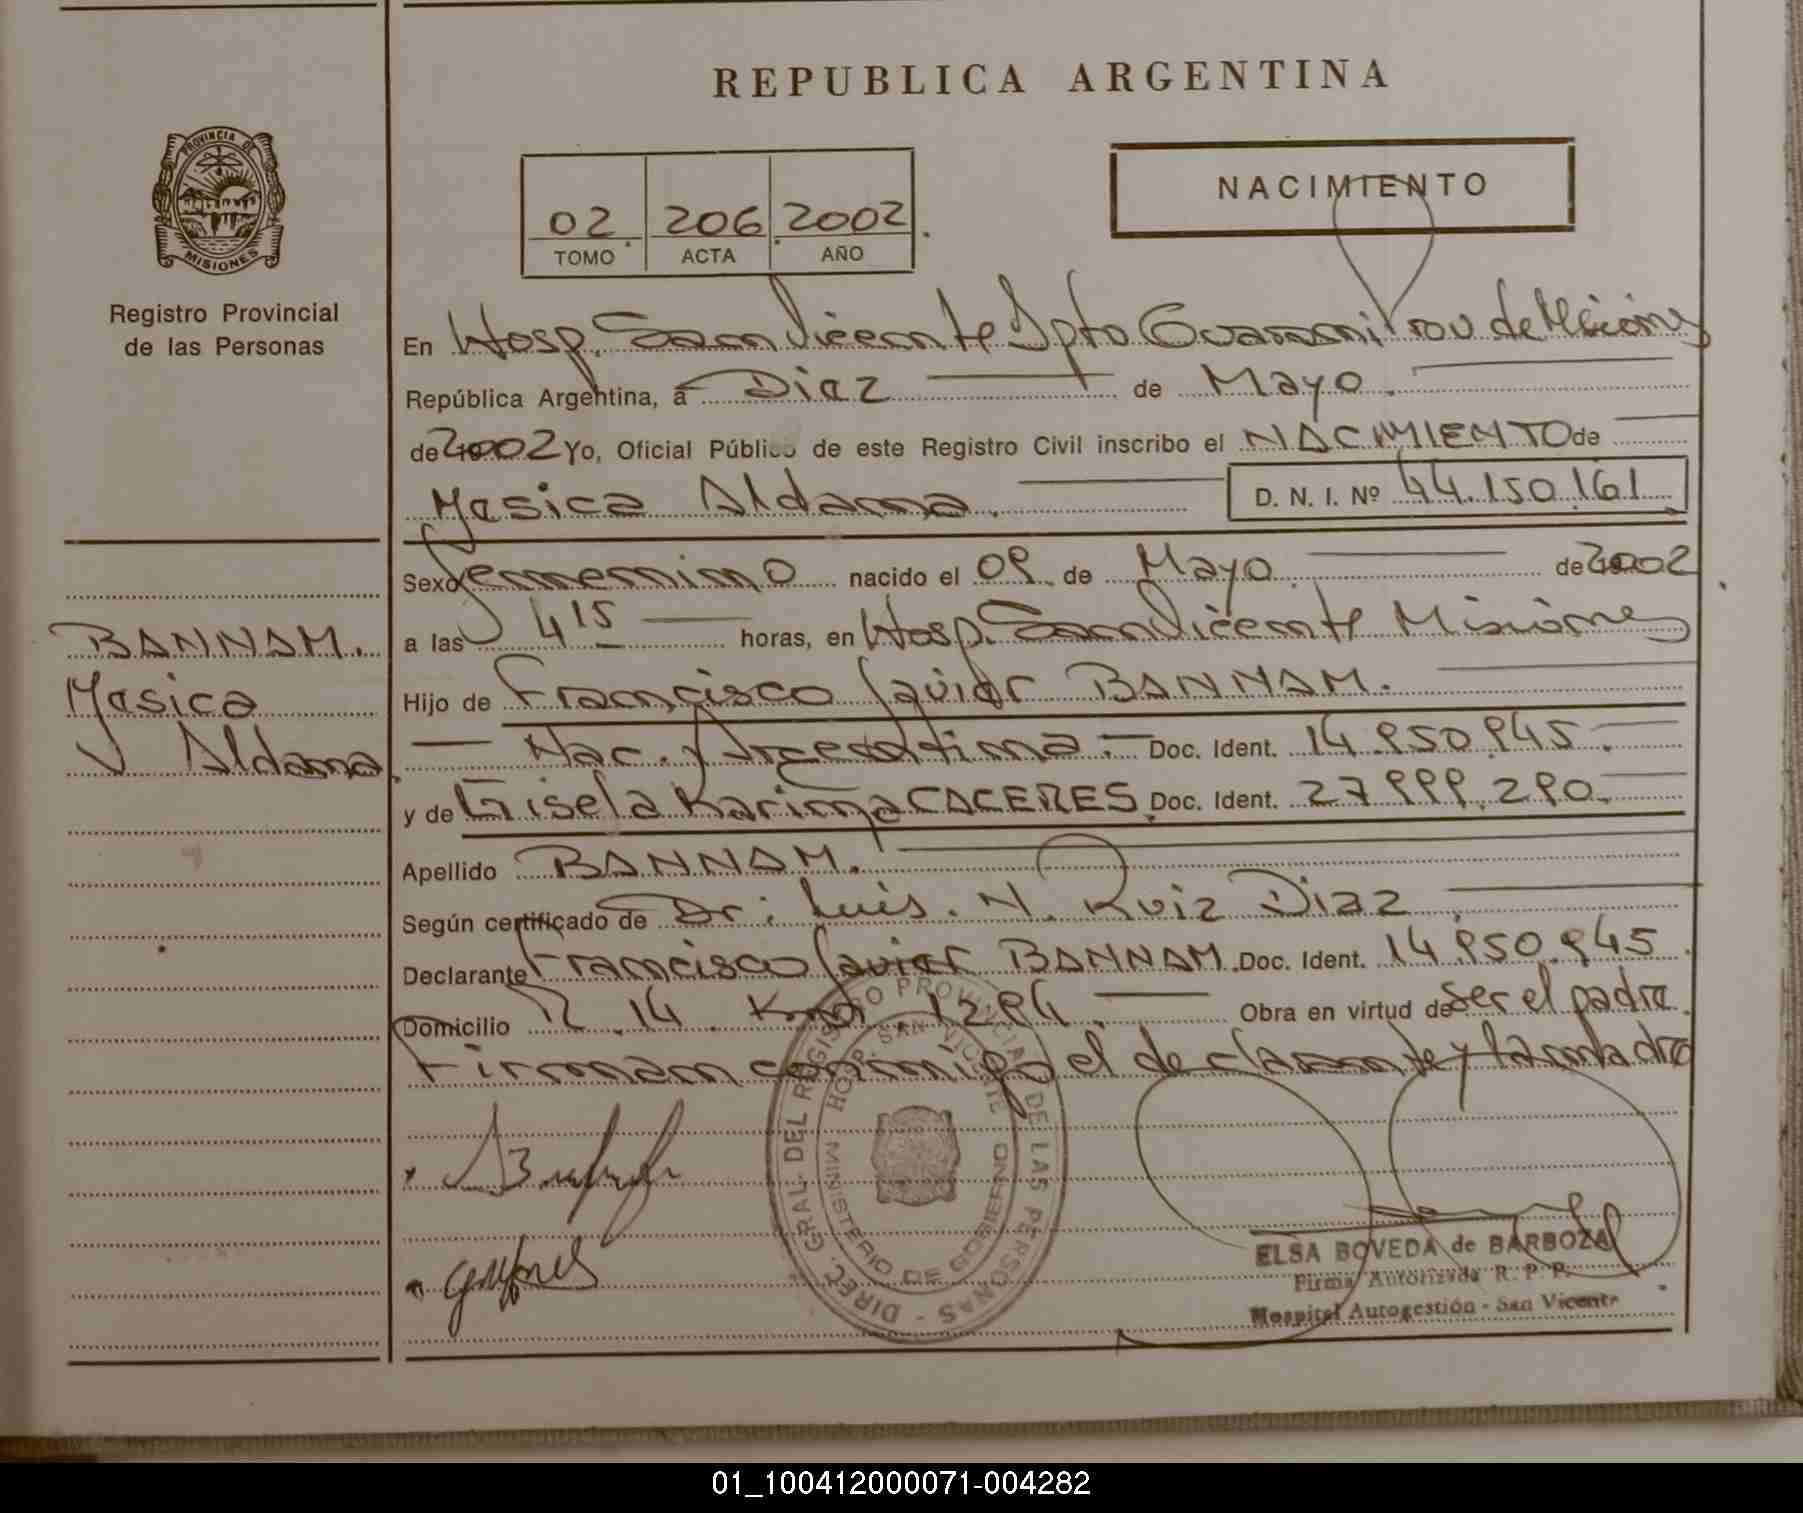 REPUBLICA ARGENTINA
PROVINCIA DE
MISIONES
Registro Provincial
de las Personas
02 206 2002
TOMO ACTA AÑO
NACIMIENTO
En Hosp. San Vicente Dpto Guarani Prov de Misiones
República Argentina, a Diez de Mayo
de 2002 Yo, Oficial Público de este Registro Civil inscribo el NACIMIENTO de
Yesica Aldana. D. N. I. Nº 44.150.161
Sexo femenino nacido el 09 de Mayo de 2002
a las 4 15 horas, en Hosp. San Vicente Misiones
Hijo de Francisco Javier BANNAM.
Nac. Argentina. Doc. Ident. 14.950.945.
y de Gisela Karina CACERES. Doc. Ident. 27.999.290.
Apellido BANNAM.
Según certificado de Dr. Luis. N. Ruiz Diaz
Declarante Francisco Javier BANNAM Doc. Ident. 14.950.945
Domicilio R. 14. Km. 1294. Obra en virtud de Ser el padre.
Firman conmigo el declarante y la madre
BANNAM.
Yesica
Aldana
DIREC. GRAL. DEL REGISTRO PROVINCIAL DE LAS PERSONAS
HOSP. SAN VICENTE
MINISTERIO DE GOBIERNO
ELSA BOVEDA de BARBOZA
Firma Autorizada R. P. P.
Hospital Autogestión - San Vicente
01_100412000071-004282